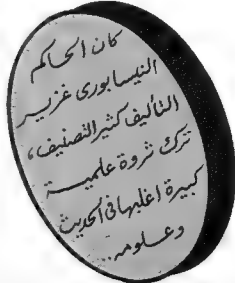 كان الحاكم
النيسابورى غزير
التأليف كثير التصنيف،
ترك ثروة علمية
كبيرة اغلبها فى الحديث
وعلومه..